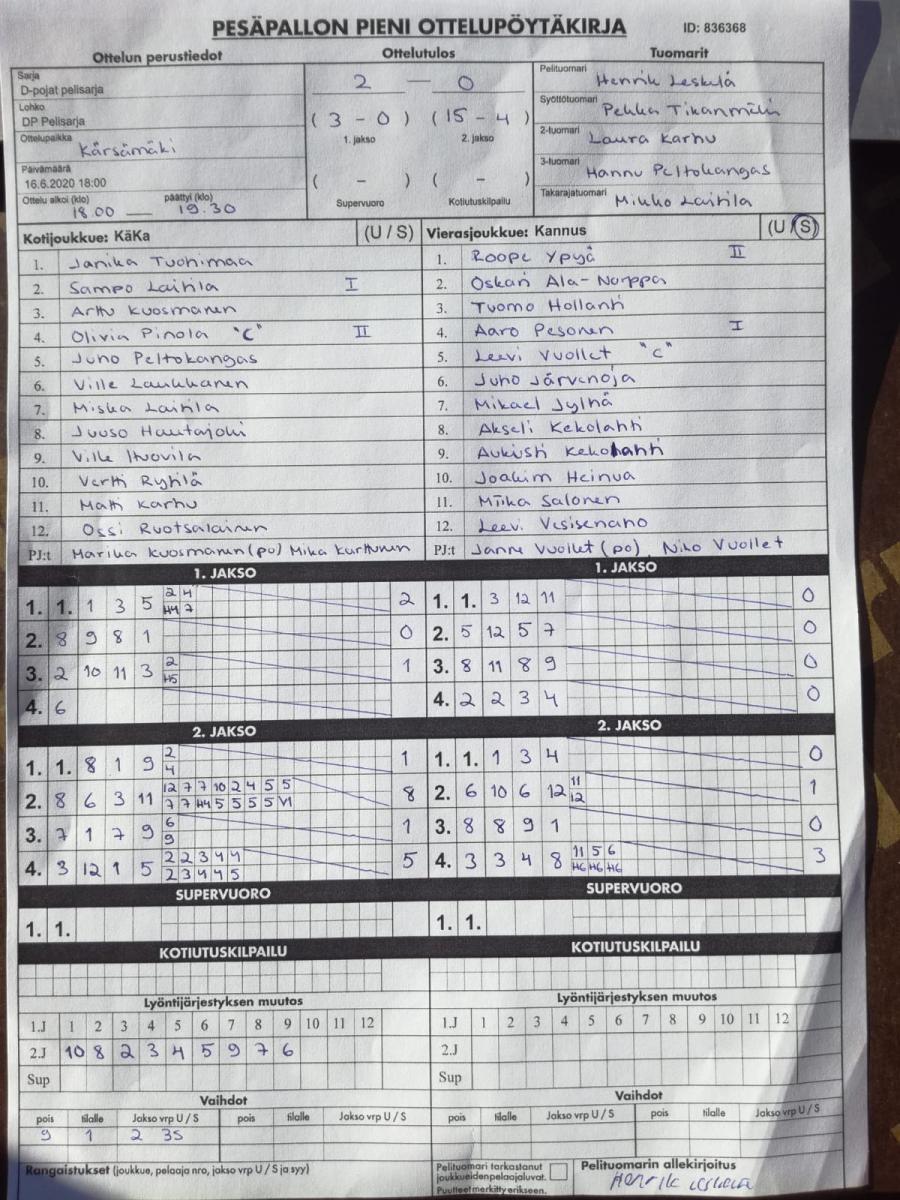 PESÄPALLON PIENI OTTELUPÖYTÄKIRJA ID: 836368
Ottelun perustiedot Ottelutulos Tuomarit
Sarja
D-pojat pelisarja
2 — 0
Pelituomari Henrik Leskelä
Lohko
DP Pelisarja
(3 - 0) (15 - 4)
Syöttötuomari Pekka Tikanmäki
1. jakso 2. jakso
Ottelupaikka Kärsämäki
2-tuomari Laura Karhu
Päivämäärä
16.6.2020 18:00
( - ) ( - )
3-tuomari Hannu Peltokangas
Ottelu alkoi (klo) päättyi (klo)
18.00 — 19.30
Supervuoro Kotiutuskilpailu
Takarajatuomari Mikko Laitila
Kotijoukkue: KäKa (U / S) Vierasjoukkue: Kannus (U / S)
1. Janika Tuohimaa 1. Roope Ypyä II
2. Sampo Laitila I 2. Oskari Ala-Norppa
3. Arttu Kuosmanen 3. Tuomo Hollanti
4. Olivia Pinola "C" II 4. Aaro Pesonen I
5. Juho Peltokangas 5. Leevi Vuollet "C"
6. Ville Laukkanen 6. Juho Järvenoja
7. Miska Laitila 7. Mikael Jylhä
8. Juuso Hautajoki 8. Akseli Kekolahti
9. Ville 9. Aukusti Kekolahti
10. Vertti 10. Joakim
11. Matti Karhu 11. Miika Salonen
12. Ossi Ruotsalainen 12. Leevi Vesisenaho
PJ:t Marika Kuosmanen (po) Mika Karttunen PJ:t Janne Vuollet (po) Niko Vuollet
1. JAKSO 1. JAKSO
1. 1. 1 3 5 2 4 2 1. 1. 3 12 11 0
H4 7
2. 8 9 8 1 0 2. 5 12 5 7 0
3. 2 10 11 3 2 1 3. 8 11 8 9 0
H5
4. 6 4. 2 2 3 4 0
2. JAKSO 2. JAKSO
1. 1. 8 1 9 2 1 1. 1. 1 3 4 0
4
2. 8 6 3 11 12 7 7 10 2 4 5 5 8 2. 6 10 6 12 11 1
7 7 H4 5 5 5 5 VI 12
3. 7 1 7 9 6 1 3. 8 8 9 1 0
9
4. 3 12 1 5 2 2 3 4 4 5 4. 3 3 4 8 11 5 6 3
2 3 4 4 5 H6 H6 H6
SUPERVUORO SUPERVUORO
1. 1. 1. 1.
KOTIUTUSKILPAILU KOTIUTUSKILPAILU
Lyöntijärjestyksen muutos Lyöntijärjestyksen muutos
1.J 1 2 3 4 5 6 7 8 9 10 11 12 1.J 1 2 3 4 5 6 7 8 9 10 11 12
2.J 10 8 2 3 4 5 9 7 6 2.J
Sup Sup
Vaihdot Vaihdot
pois tilalle Jakso vrp U / S pois tilalle Jakso vrp U / S pois tilalle Jakso vrp U / S pois tilalle Jakso vrp U / S
9 1 2 3S
Rangaistukset (joukkue, pelaaja nro, jakso vrp U / S ja syy)
Pelituomari tarkastanut
joukkueidenpelaajaluvat.
Puutteet merkitty erikseen.
Pelituomarin allekirjoitus
Henrik Leskelä